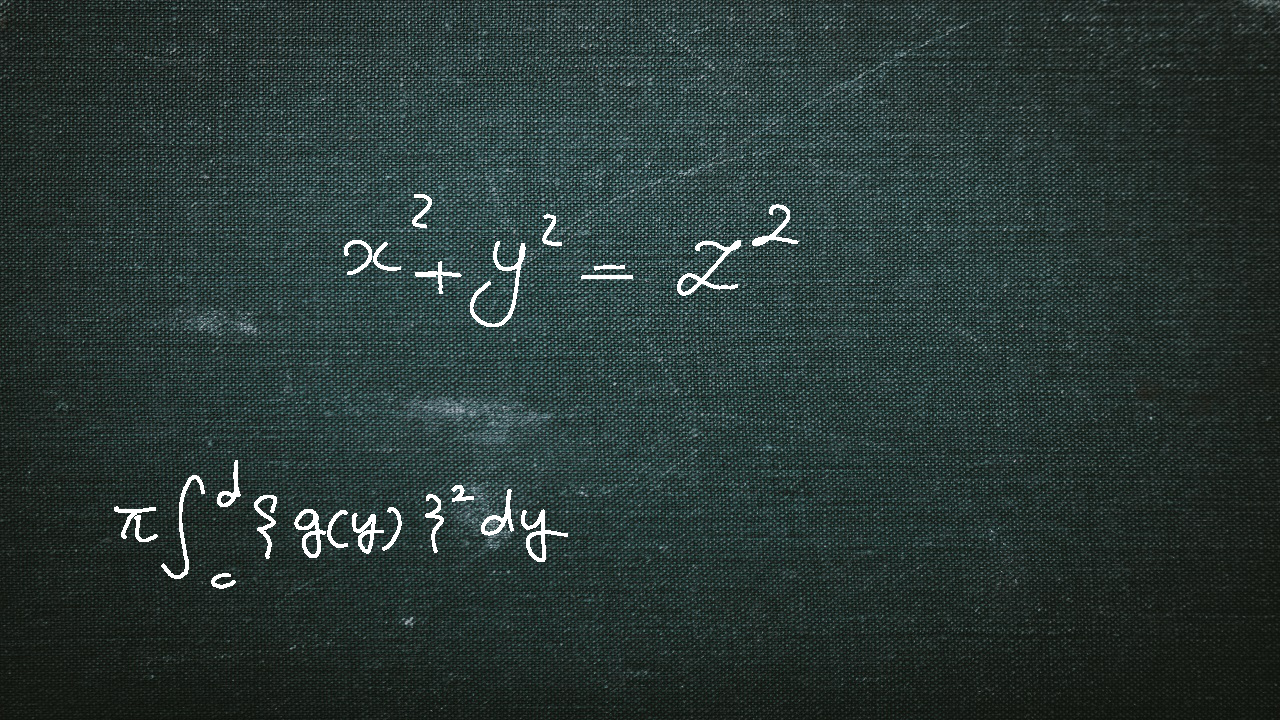 x² + y² = z²
π∫_c^d {g(y)}² dy